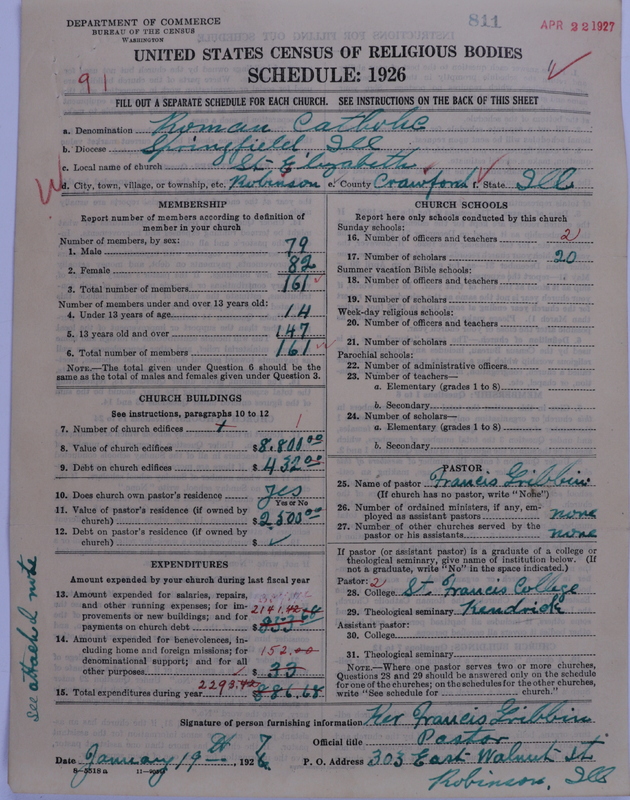 DEPARTMENT OF COMMERCE
BUREAU OF THE CENSUS
WASHINGTON
811
APR 22 1927
UNITED STATES CENSUS OF RELIGIOUS BODIES
SCHEDULE: 1926
91
FILL OUT A SEPARATE SCHEDULE FOR EACH CHURCH. SEE INSTRUCTIONS ON THE BACK OF THIS SHEET
a. Denomination Roman Catholic
b. Diocese Springfield, Ill
c. Local name of church St Elizabeth
d. City, town, village, or township, etc. Robinson e. County Crawford f. State Ill
MEMBERSHIP
Report number of members according to definition of member in your church
Number of members, by sex:
1. Male 79
2. Female 82
3. Total number of members 161
Number of members under and over 13 years old:
4. Under 13 years of age 14
5. 13 years old and over 147
6. Total number of members 161
NOTE.—The total given under Question 6 should be
same as the total of males and females given under Question 3.
CHURCH BUILDINGS
See instructions, paragraphs 10 to 12
7. Number of church edifices 1
8. Value of church edifices $8.800 00
9. Debt on church edifices $432 00
10. Does church own pastor's residence yes
Yes or No
11. Value of pastor's residence (if owned by
church) $2,500 00
12. Debt on pastor's residence (if owned by
church) $
EXPENDITURES
Amount expended by your church during last fiscal year
13. Amount expended for salaries, repairs,
and other running expenses; for im-
provements or new buildings; and for 2141.42
payments on church debt $853
14. Amount expended for benevolences, in-
cluding home and foreign missions; for
denominational support; and for all 152.00
other purposes $33
2293.42
15. Total expenditures during year $886.68
See attached note
CHURCH SCHOOLS
Report here only schools conducted by this church
Sunday schools:
16. Number of officers and teachers 2
17. Number of scholars 20
Summer vacation Bible schools:
18. Number of officers and teachers
19. Number of scholars
Week-day religious schools:
20. Number of officers and teachers
21. Number of scholars
Parochial schools:
22. Number of administrative officers
23. Number of teachers—
a. Elementary (grades 1 to 8)
b. Secondary
24. Number of scholars—
a. Elementary (grades 1 to 8)
b. Secondary
PASTOR
25. Name of pastor Francis Gribbin
(If church has no pastor, write "None")
26. Number of ordained ministers, if any, em-
ployed as assistant pastors none
27. Number of other churches served by the
pastor or his assistants none
If pastor (or assistant pastor) is a graduate of a college or
theological seminary, give name of institution below. (If
not a graduate, write "No" in the space indicated.)
Pastor: 2
28. College St. Francis College
29. Theological seminary Kendrick
Assistant pastor:
30. College
31. Theological seminary
NOTE.—Where one pastor serves two or more churches,
Questions 28 and 29 should be answered only on the schedule
for one of the churches; on the schedules for the other churches,
write "See schedule for church."
Signature of person furnishing information Rev Francis Gribbin
Official title Pastor
Date January 19th, 1927 P. O. Address 303 East Walnut St
Robinson, Ill
8-5518a